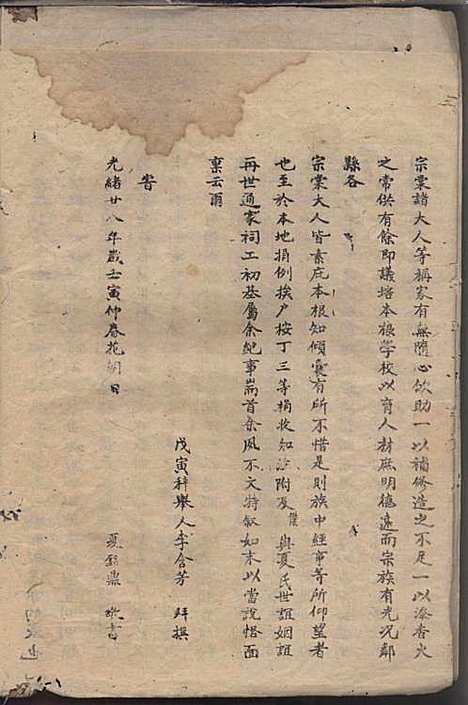 宗棠諸大人等稱家有無隨心飲助一以補修造之不足一以添香火
之常供有餘即議培本根學校以育人材庶明德遠而宗族有光況鄰
縣各
宗棠大人皆素庇本根知傾囊有所不惜是則族中經事等所仰望者
也至於本地捐例挨户按丁三等捐收知註附及僕與夏氏世誼姻誼
再世通家祠工初基屬余紀事耑首余夙不文特叙如末以當說帖面
稟云爾
旹
光緒廿八年歲士寅仲春花朝日
戊寅科舉人李含芳 拜撰
夏錦鼎 敬書